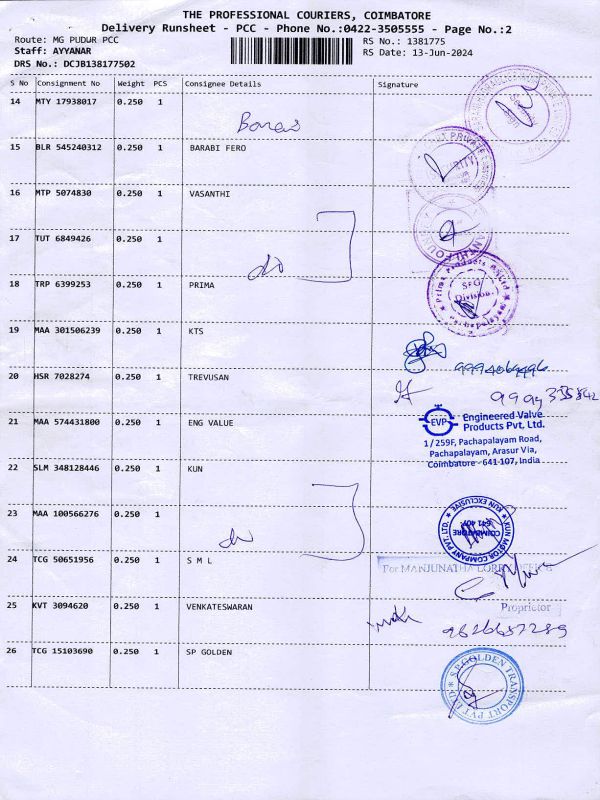 THE PROFESSIONAL COURIERS, COIMBATORE
Delivery Runsheet - PCC - Phone No.:0422-3505555 - Page No.:2
Route: MG PUDUR PCC RS No.: 1381775
Staff: AYYANAR RS Date: 13-Jun-2024
DRS No.: DCJB138177502
S No Consignment No Weight PCS Consignee Details Signature
14 MTY 17938017 0.250 1
15 BLR 545240312 0.250 1 BARABI FERO
16 MTP 5074830 0.250 1 VASANTHI
17 TUT 6849426 0.250 1
do
18 TRP 6399253 0.250 1 PRIMA
Prima Products
SFG
Division
19 MAA 301506239 0.250 1 KTS
20 HSR 7028274 0.250 1 TREVUSAN
21 MAA 574431800 0.250 1 ENG VALUE
EVP Engineered Valve
Products Pvt. Ltd.
1/259F, Pachapalayam Road,
Pachapalayam, Arasur Via,
Coimbatore - 641-107, India
22 SLM 348128446 0.250 1 KUN
KUN MOTOR COMPANY PVT. LTD. * KUN EXCLUSIVE *
COIMBATORE
23 MAA 100566276 0.250 1
24 TCG 50651956 0.250 1 S M L
For MANJUNATHA LORRY OFFICE
Proprietor
25 KVT 3094620 0.250 1 VENKATESWARAN
26 TCG 15103690 0.250 1 SP GOLDEN
S.P.GOLDEN TRANSPORT PVT LTD